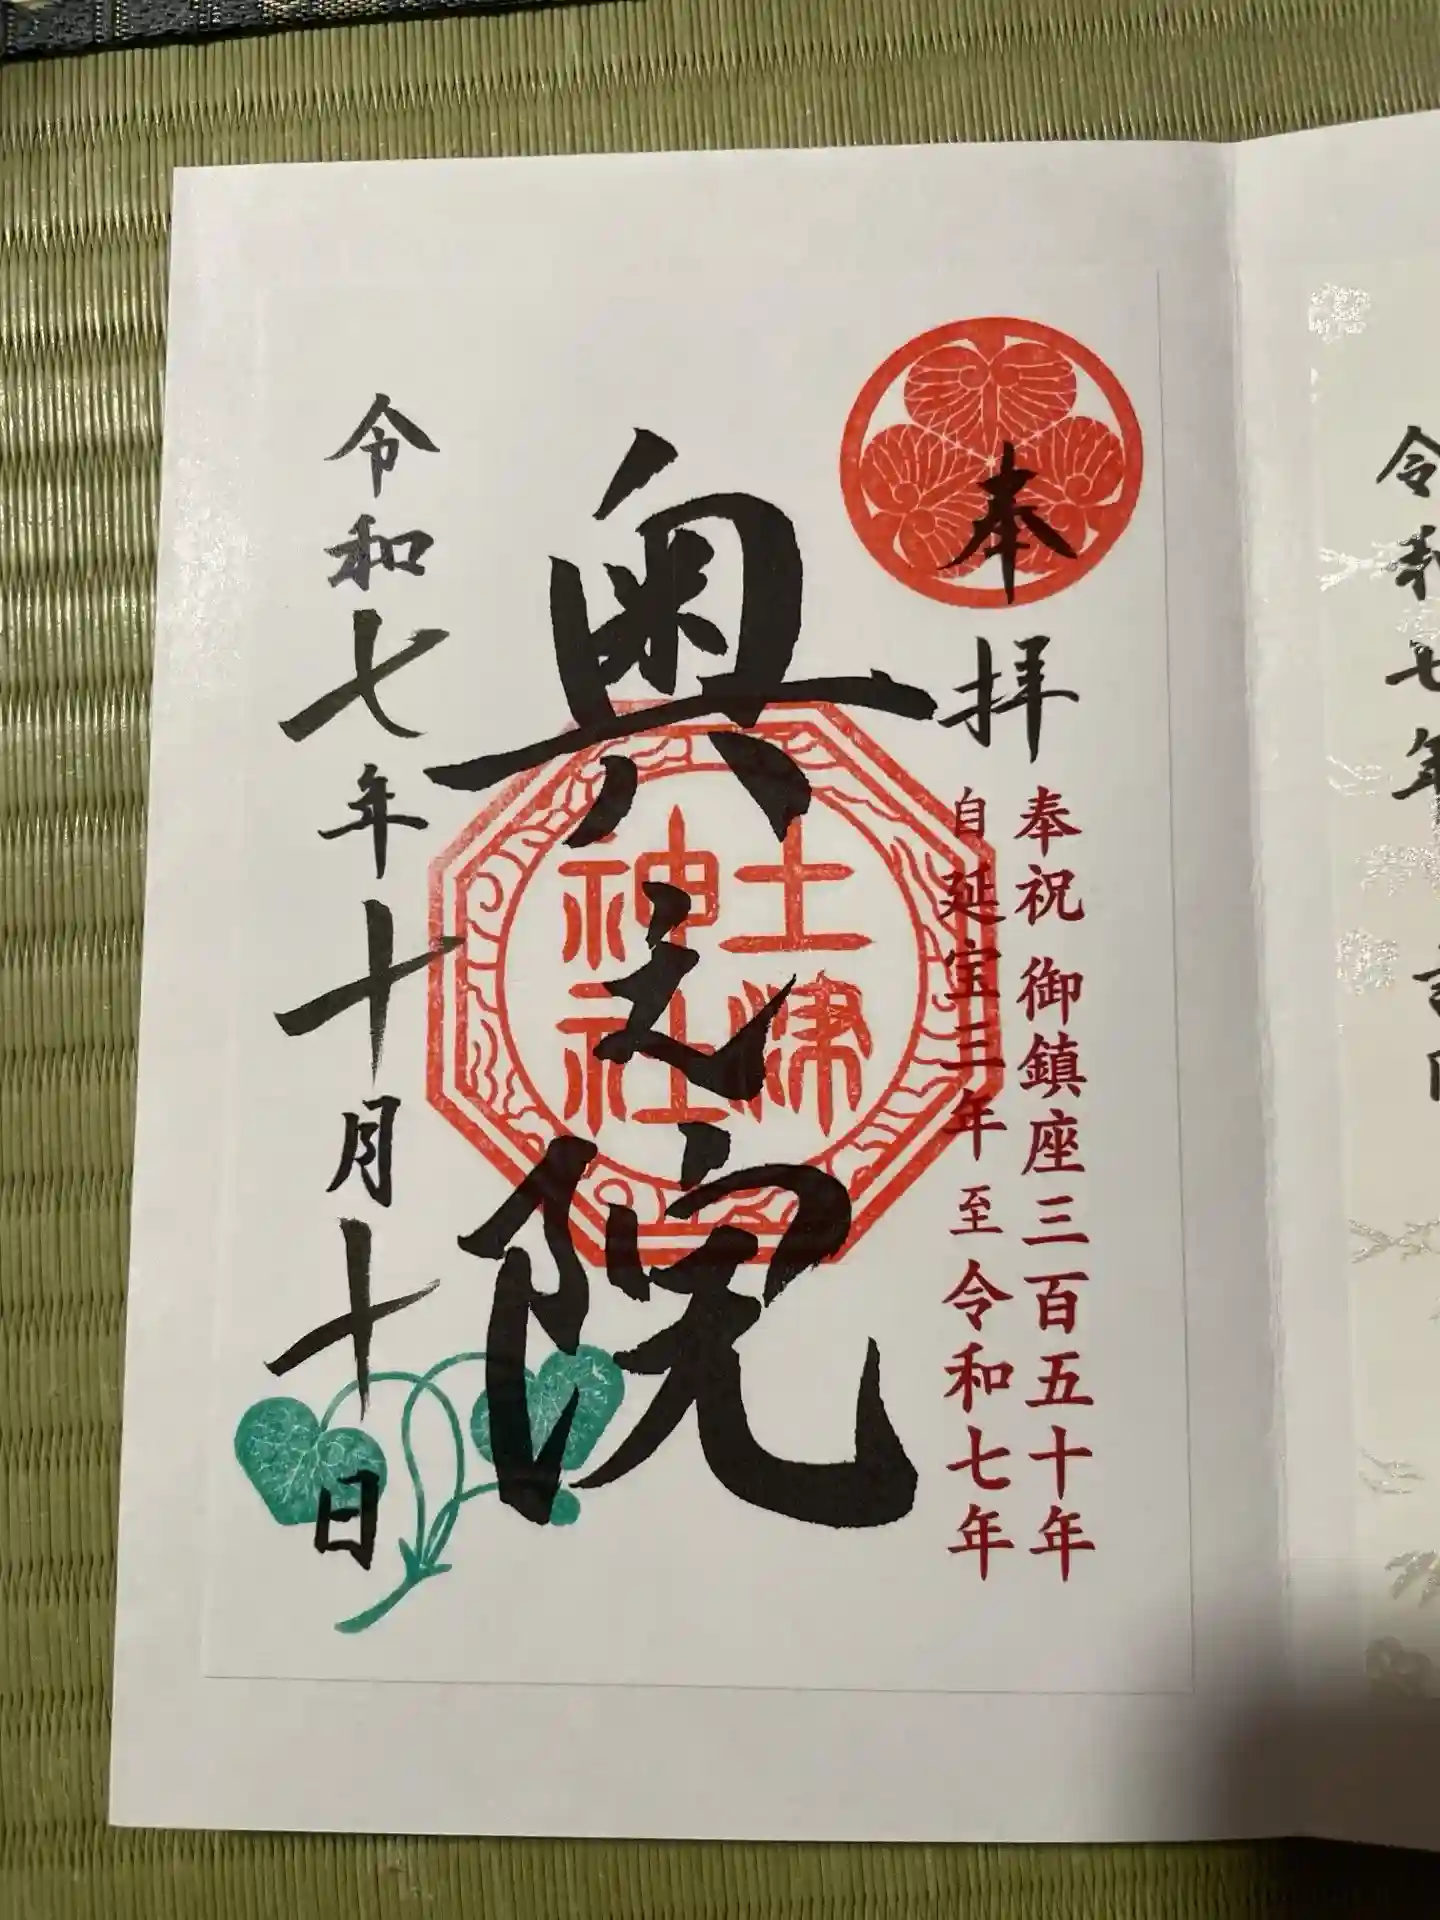 令和七年
奉拝
奉祝 御鎮座三百五十年
自延宝三年 至令和七年
奥之院
土津
神社
令和七年十月十日